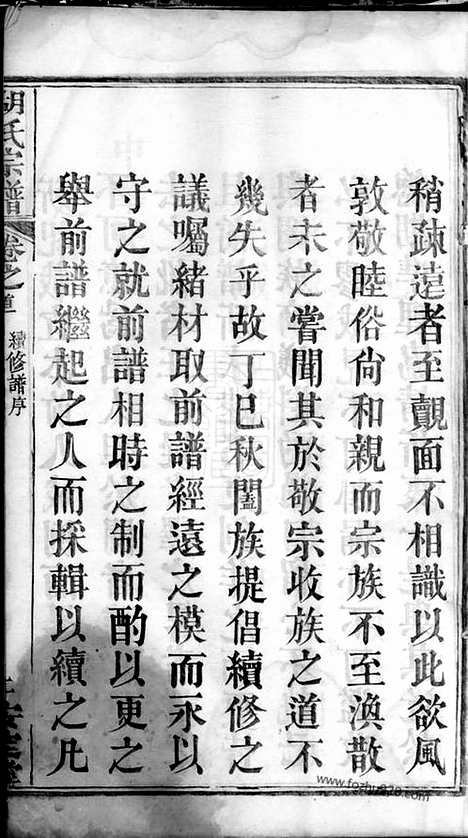 稍疎遠者至覿面不相識以此欲風
敦敬睦俗尙和親而宗族不至渙散
者未之嘗聞其於敬宗收族之道不
幾失乎故丁巳秋闔族提倡續修之
議囑緒材取前譜經遠之模而永以
守之就前譜相時之制而酌以更之
舉前譜繼起之人而採輯以續之凡
胡氏宗譜
卷之首
續修譜序
www.fozhu920.com